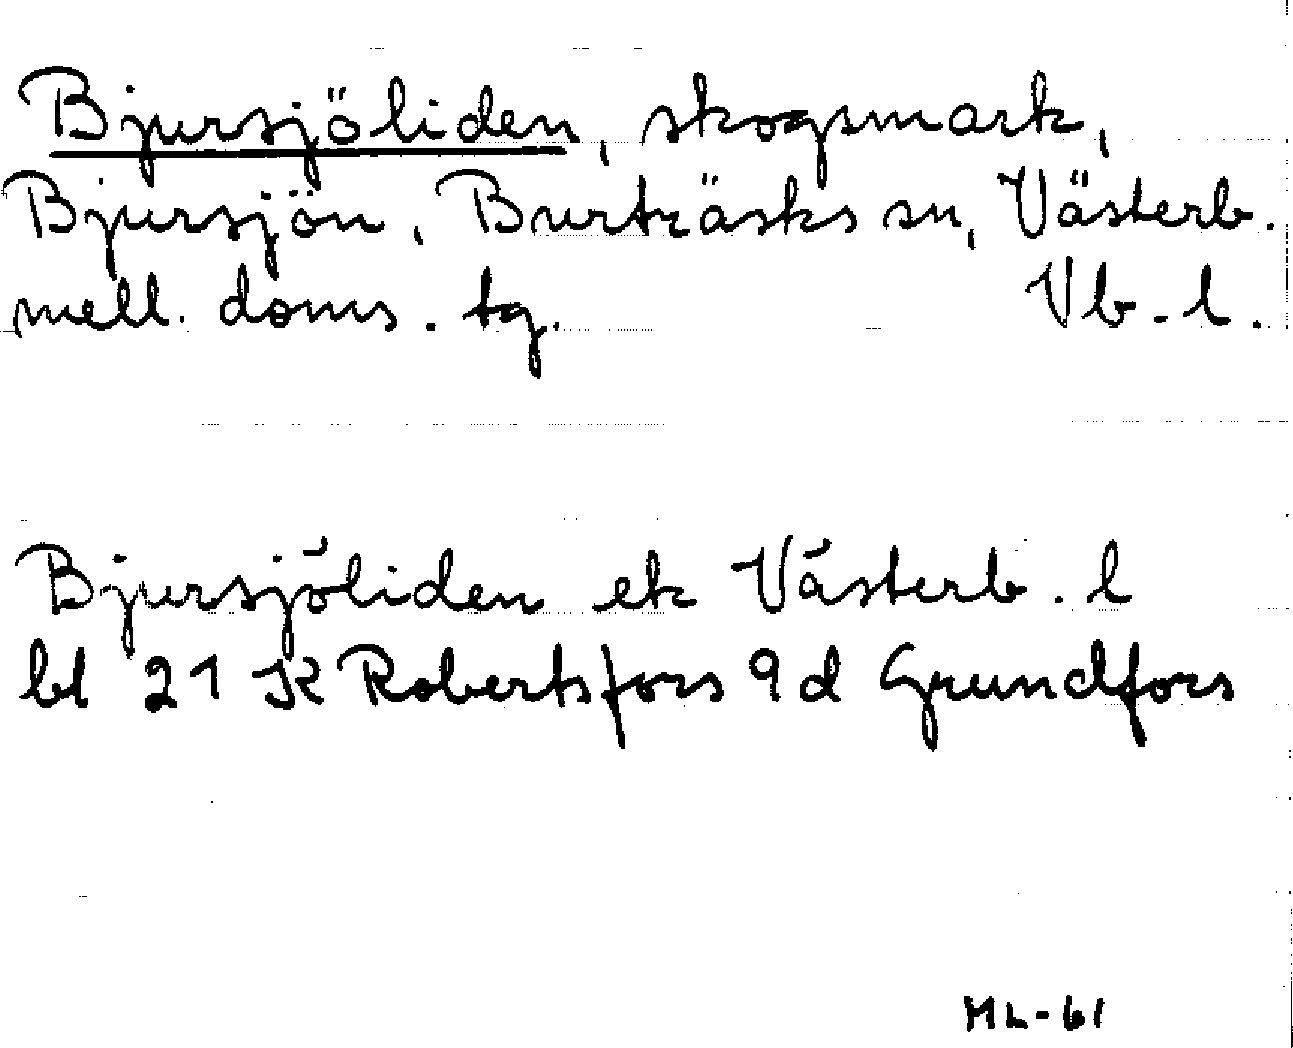 Bjursjöliden, skogsmark,
Bjursjön, Burträsks sn, Västerb.
mell. doms. tg. Vb. l.
Bjursjöliden ek Västerb. l
bl 21 K Robertsfors 9d Grundfors
ML-61